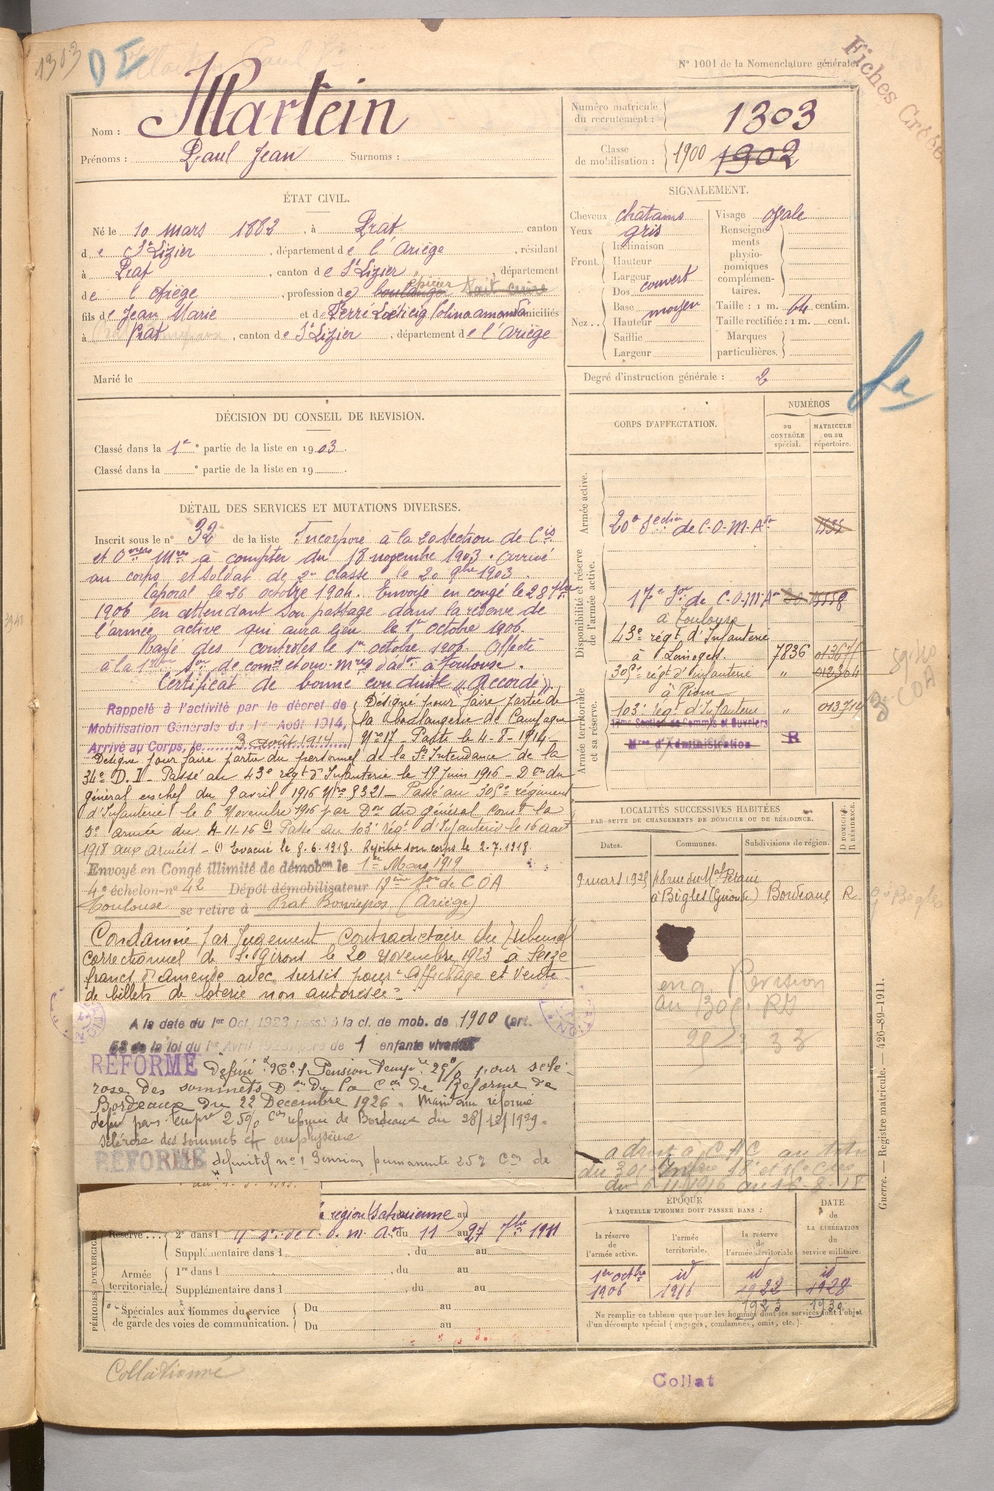 1303
DI
N° 1001 de la Nomenclature générale.
Fiches
Nom : Martein
Prénoms : Paul Jean Surnoms :
Numéro matricule du recrutement : 1303
Classe de mobilisation : 1900 1902
ÉTAT CIVIL.
Né le 10 mars 1882, à Prat canton
de St Lizier, département de l'Ariège, résidant
à Prat, canton de St Lizier, département
de l'Ariège, profession de boulanger épicier
fils de Jean Marie et de domiciliés
à Prat, canton de St Lizier, département de l'Ariège
Marié le
SIGNALEMENT.
Cheveux châtains
Yeux gris
Front. Inclinaison
Hauteur
Largeur
Nez. Dos couvert
Base moyen
Hauteur
Saillie
Largeur
Visage ovale
Renseignements physionomiques complémentaires.
Taille : 1 m. 64 centim.
Taille rectifiée : 1 m. cent.
Marques particulières.
Degré d'instruction générale : 2
DÉCISION DU CONSEIL DE REVISION.
Classé dans la 1e partie de la liste en 1903.
Classé dans la e partie de la liste en 19
DÉTAIL DES SERVICES ET MUTATIONS DIVERSES.
Inscrit sous le n° 32 de la liste Incorporé à la 20 Section de Cis
et Oers Mres à compter du 18 novembre 1903. Arrivé
au corps, et soldat de 2e classe le 20 9bre 1903.
Caporal le 26 octobre 1904. Envoyé en congé le 28 7bre
1906 en attendant son passage dans la réserve de
l'armée active qui aura lieu le 1er octobre 1906.
Rayé des contrôles le 1er octobre 1906. Affecté
à la 17me Son de comis et ouv. mres d'adon à Toulouse.
Certificat de bonne conduite "Accordé".
Rappelé à l'activité par le décret de
Mobilisation Générale du 1er Août 1914,
Arrivé au Corps, le 3 août 1914
Désigné pour faire partie de
la boulangerie de Campagne
N° 17 - Parti le 4-8-1914
Désigné pour faire partie du personnel de la Ss Intendance de la
34e D.I. - Passé au 43e régt d'Infanterie le 19 Juin 1916 - Don du
général en chef du 9 avril 1916 N° 9321 - Passé au 305e régiment
d'Infanterie le 6 Novembre 1916 par Don du général comt la
5e armée du 4-11-16 (1) Passé au 103e régt d'Infanterie le 16 août
1918 aux armées - (1) Evacué le 8.6.1918. Rejoint son corps le 2.7.1918.
Envoyé en Congé illimité de démobon le 1er Mars 1919
4e échelon n° 42 Dépôt démobilisateur 17ème Son de COA
Toulouse se retire à Prat Bonrepos (Ariège)
Condamné par Jugement contradictoire du Tribunal
Correctionnel de St Girons le 20 Novembre 1923 à Seize
francs d'amende avec sursis pour "Affichage et Vente
de billets de loterie non autorisée"
A la date du 1er Oct. 1923 passé à la cl. de mob. de 1900 (art.
58 de la loi du 1er Avril 1923) père de 1 enfants vivants
RÉFORMÉ Définif n° 1 Pension Tempre 25% pour sclé-
rose des sommets Don de la Con de Réforme de
Bordeaux du 22 Décembre 1926. Maintenu réformé
défif pens. tempre 25% Con réforme de Bordeaux du 28/12/1929.
Sclérose des sommets et emphysème
RÉFORMÉ définitif n° 1 Pension permanente 25% Con de
CORPS D'AFFECTATION.
NUMÉROS
au CONTRÔLE spécial.
MATRICULE ou au répertoire.
Armée active.
20e Section de C.O.M.Aon
Disponibilité et réserve de l'armée active.
17e Son de C.O.M.A
à Toulouse
43e régt d'Infanterie
à Limoges. 7836
305e régt d'Infanterie "
à Riom
Armée territoriale et sa réserve.
103e régt d'Infanterie " 013714
17ème Section de Commis et Ouvriers
Mres d'Administration R
COA
LOCALITÉS SUCCESSIVES HABITÉES
PAR SUITE DE CHANGEMENTS DE DOMICILE OU DE RÉSIDENCE.
Dates. Communes. Subdivisions de région. D DOMICILE R RÉSIDENCE.
9 mars 1928 à Bègles (Gironde) Bordeaux R
Bègles
Revision
25 33
a droit à CAC au titre
du 6.11.1916 au 16-8-18
PÉRIODES D'EXERCICES
région Saharienne au
Réserve 2e dans l 17e Son de C.O.M.A. du 11 au 27 7bre 1911
Supplémentaire dans l , du au
Armée territoriale. 1re dans l , du au
Supplémentaire dans l , du au
Spéciales aux hommes du service de garde des voies de communication. Du au
Du au
ÉPOQUE
À LAQUELLE L'HOMME DOIT PASSER DANS :
la réserve de l'armée active. l'armée territoriale. la réserve de l'armée territoriale.
DATE de la LIBÉRATION du service militaire.
1er octbre 1906 id 1916 id 1922 id 1928
1923 1930
Ne remplir ce tableau que pour les hommes dont les services font l'objet
d'un décompte spécial (engagés, condamnés, omis, etc.).
Guerre. — Registre matricule. — 426-89-1911.
Collationné
Collat